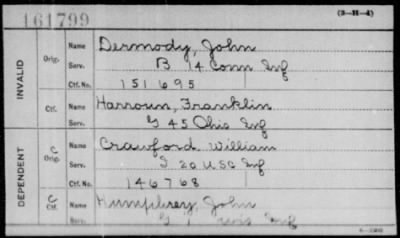 161799
(3-H-4)
INVALID
Orig.
Name Dermody, John
Serv. B 14 Conn Inf
Ctf. No. 151695
Ctf.
Name Harroun, Franklin
Serv. G 45 Ohio Inf
DEPENDENT
C Orig.
Name Crawford William
Serv. I 20 U S C Inf
Ctf. No. 146768
C Ctf.
Name Humphrey, John
Serv. Inf